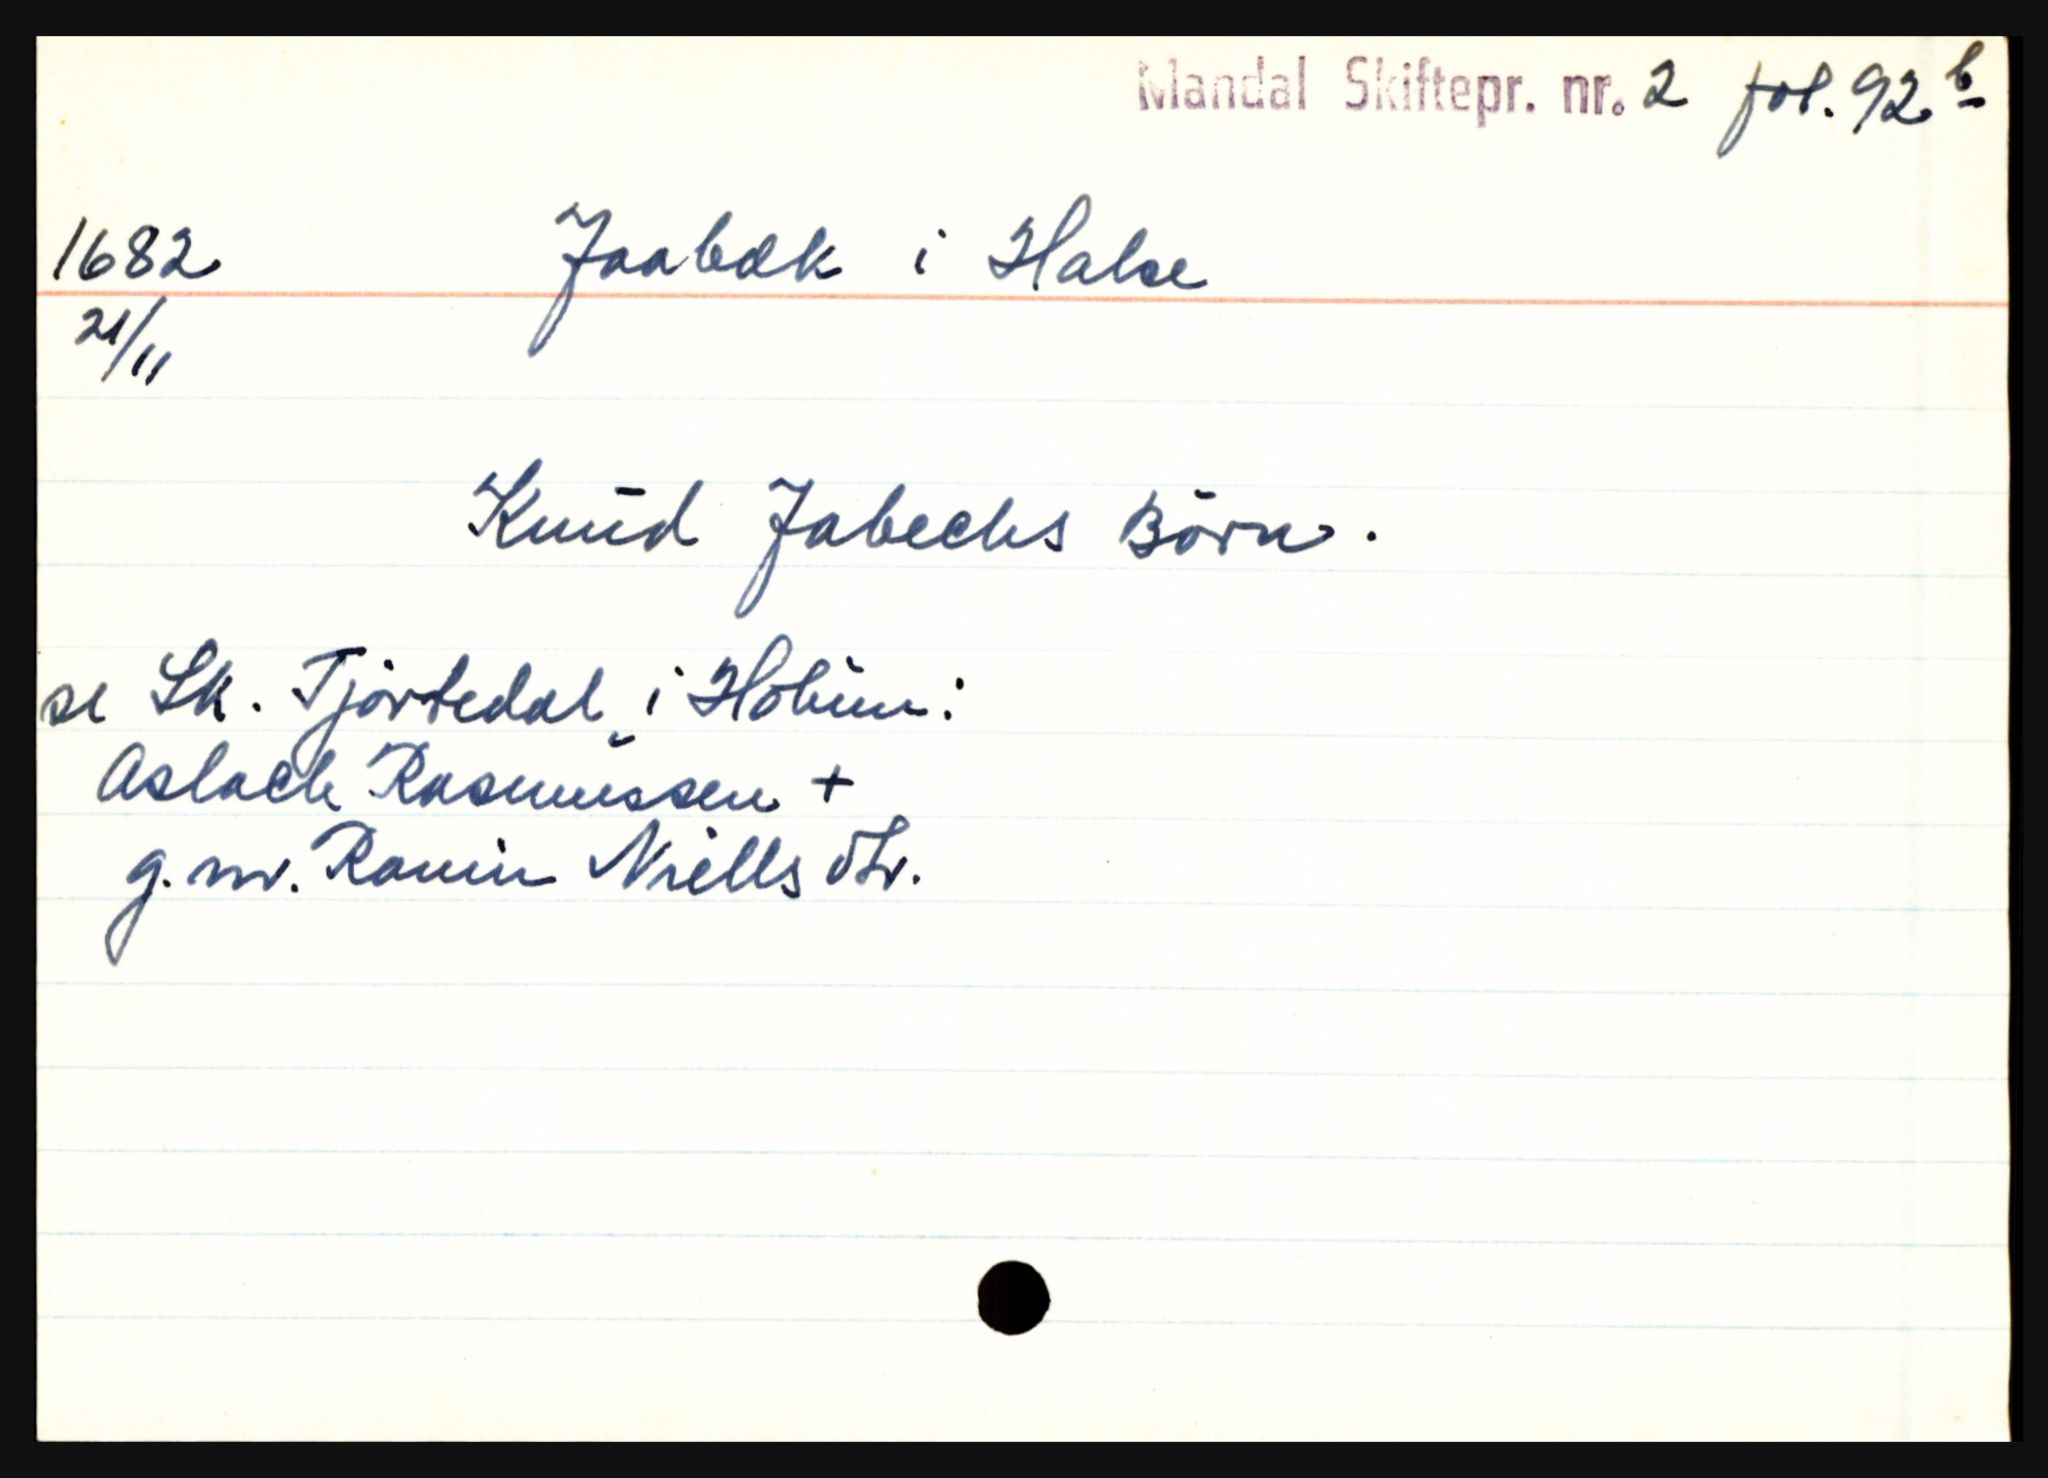 Mandal Skiftepr. nr. 2 fol. 92 b
1682 Jaabæk i Halse
21/11
Knud Jabechs Börn.
se Sk. Tjörtedal i Holum:
Aslach Rasmussen +
g. m. Rannir Niells dtr.